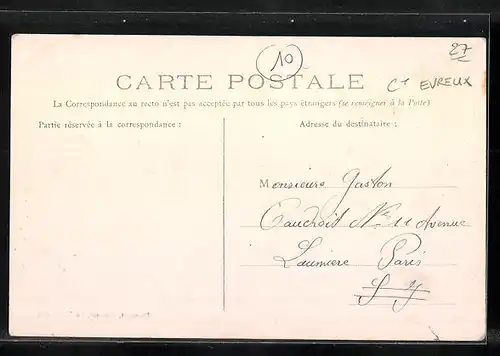 10
27
CARTE POSTALE
Ct EVREUX
La Correspondance au recto n'est pas acceptée par tous les pays étrangers (se renseigner à la Poste)
Partie réservée à la correspondance :
Adresse du destinataire :
Monsieurs Gaston
Caudroit No 11 Avenue
Laumiere Paris